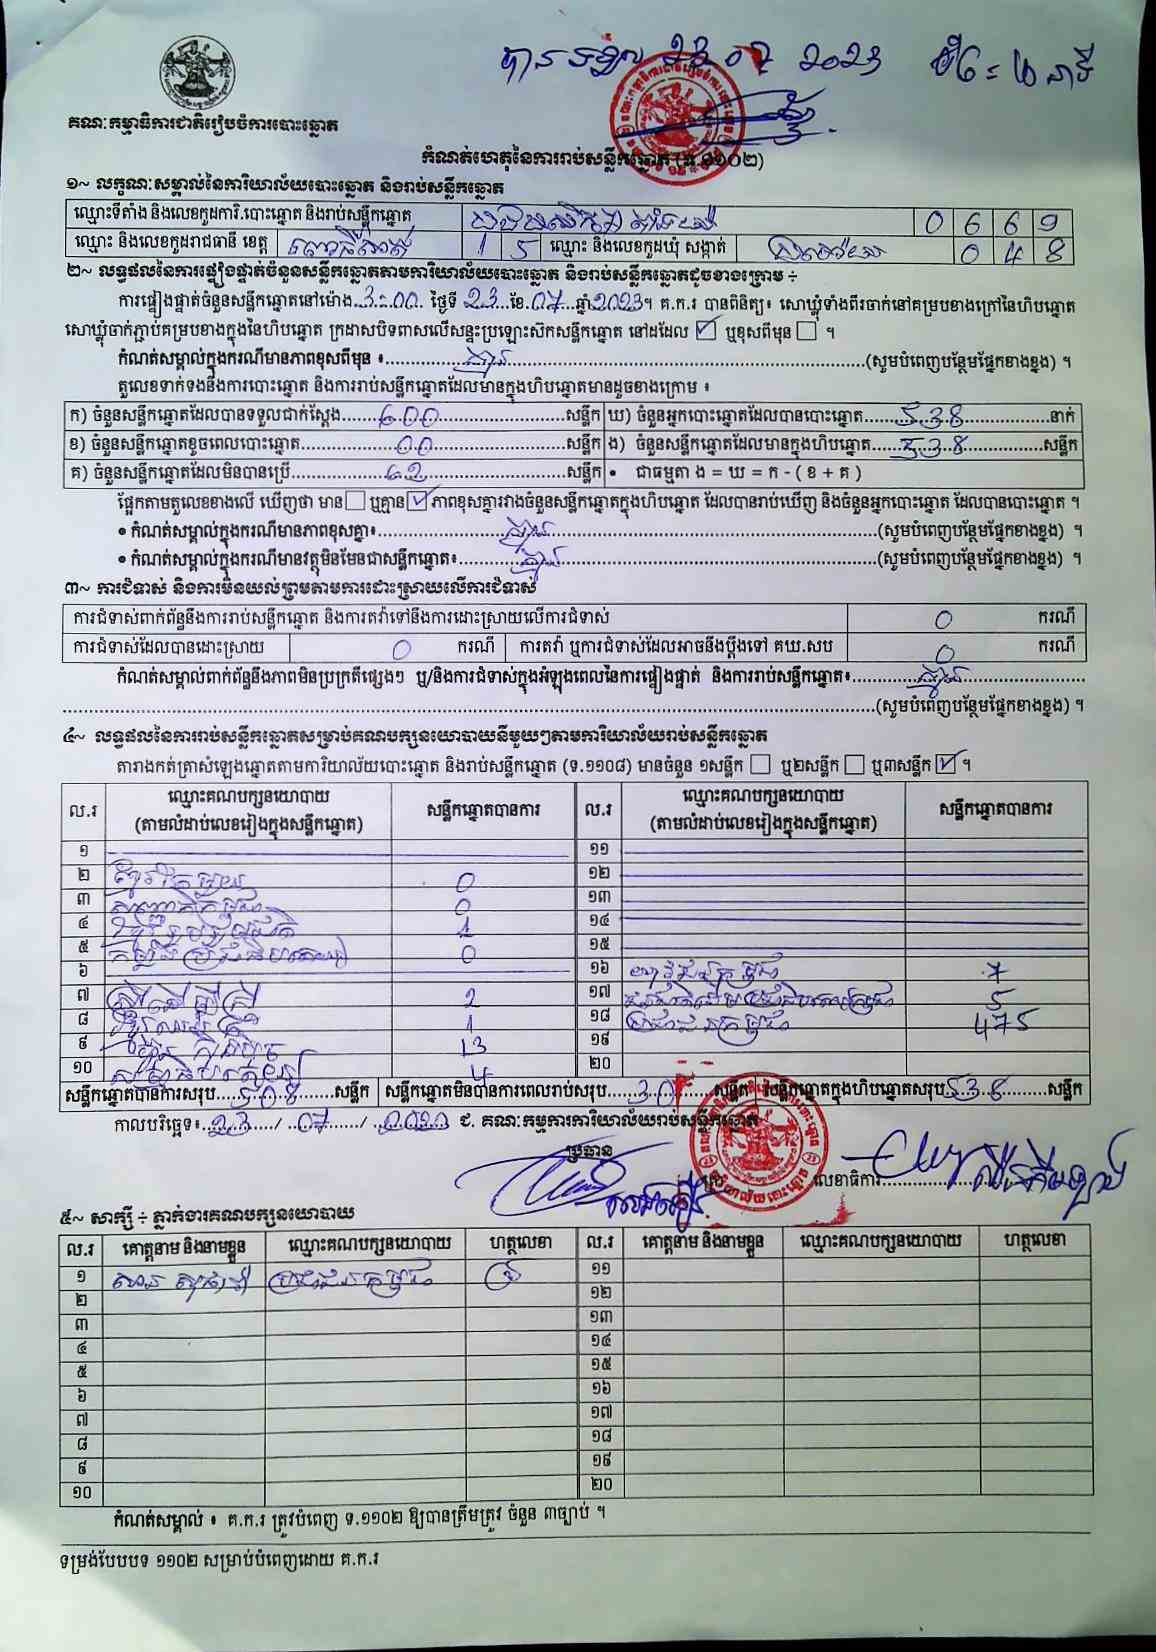 បានទទួល 23 07 2023
គណៈកម្មាធិការជាតិរៀបចំការបោះឆ្នោត
កំណត់ហេតុនៃការរាប់សន្លឹកឆ្នោត (ទ.១១០២)
១~ លក្ខណៈសម្គាល់នៃការិយាល័យបោះឆ្នោត និងរាប់សន្លឹកឆ្នោត
ឈ្មោះទីតាំង និងលេខកូដការិ.បោះឆ្នោត និងរាប់សន្លឹកឆ្នោត 0 6 6 9
ឈ្មោះ និងលេខកូដរាជធានី ខេត្ត ពោធិ៍សាត់ 1 5 ឈ្មោះ និងលេខកូដឃុំ សង្កាត់ 0 4 8
២~ លទ្ធផលនៃការផ្ទៀងផ្ទាត់ចំនួនសន្លឹកឆ្នោតតាមការិយាល័យបោះឆ្នោត និងរាប់សន្លឹកឆ្នោតដូចខាងក្រោម ÷
ការផ្ទៀងផ្ទាត់ចំនួនសន្លឹកឆ្នោតនៅម៉ោង 3:00 ថ្ងៃទី 23 ខែ 07 ឆ្នាំ 2023។ គ.ក.រ បានពិនិត្យ៖ សោឃ្លុំទាំងពីរចាក់នៅគម្របខាងក្រៅនៃហិបឆ្នោត
សោឃ្លុំចាក់ភ្ជាប់គម្របខាងក្នុងនៃហិបឆ្នោត ក្រដាសបិទពាសលើសន្ទះប្រឡោះស៊កសន្លឹកឆ្នោត នៅដដែល ☑ ឬខុសពីមុន ☐ ។
កំណត់សម្គាល់ក្នុងករណីមានភាពខុសពីមុន ៖ គ្មាន (សូមបំពេញបន្ថែមផ្នែកខាងខ្នង) ។
តួលេខទាក់ទងនឹងការបោះឆ្នោត និងការរាប់សន្លឹកឆ្នោតដែលមានក្នុងហិបឆ្នោតមានដូចខាងក្រោម ៖
ក) ចំនួនសន្លឹកឆ្នោតដែលបានទទួលជាក់ស្តែង 600 សន្លឹក ឃ) ចំនួនអ្នកបោះឆ្នោតដែលបានបោះឆ្នោត 538 នាក់
ខ) ចំនួនសន្លឹកឆ្នោតខូចពេលបោះឆ្នោត 00 សន្លឹក ង) ចំនួនសន្លឹកឆ្នោតដែលមានក្នុងហិបឆ្នោត 538 សន្លឹក
គ) ចំនួនសន្លឹកឆ្នោតដែលមិនបានប្រើ 62 សន្លឹក • ជាធម្មតា ង = ឃ = ក - ( ខ + គ )
ផ្អែកតាមតួលេខខាងលើ ឃើញថា មាន ☐ ឬគ្មាន ☑ ភាពខុសគ្នារវាងចំនួនសន្លឹកឆ្នោតក្នុងហិបឆ្នោត ដែលបានរាប់ឃើញ និងចំនួនអ្នកបោះឆ្នោត ដែលបានបោះឆ្នោត ។
• កំណត់សម្គាល់ក្នុងករណីមានភាពខុសគ្នា៖ គ្មាន (សូមបំពេញបន្ថែមផ្នែកខាងខ្នង) ។
• កំណត់សម្គាល់ក្នុងករណីមានវត្ថុមិនមែនជាសន្លឹកឆ្នោត៖ គ្មាន (សូមបំពេញបន្ថែមផ្នែកខាងខ្នង) ។
៣~ ការជំទាស់ និងការមិនយល់ព្រមតាមការដោះស្រាយលើការជំទាស់
ការជំទាស់ពាក់ព័ន្ធនឹងការរាប់សន្លឹកឆ្នោត និងការតវ៉ាទៅនឹងការដោះស្រាយលើការជំទាស់ 0 ករណី
ការជំទាស់ដែលបានដោះស្រាយ 0 ករណី ការតវ៉ា ឬការជំទាស់ដែលអាចនឹងប្តឹងទៅ គឃ.សប 0 ករណី
កំណត់សម្គាល់ពាក់ព័ន្ធនឹងភាពមិនប្រក្រតីផ្សេងៗ ឬ/និងការជំទាស់ក្នុងអំឡុងពេលនៃការផ្ទៀងផ្ទាត់ និងការរាប់សន្លឹកឆ្នោត៖ គ្មាន
(សូមបំពេញបន្ថែមផ្នែកខាងខ្នង) ។
៤~ លទ្ធផលនៃការរាប់សន្លឹកឆ្នោតសម្រាប់គណបក្សនយោបាយនីមួយៗតាមការិយាល័យរាប់សន្លឹកឆ្នោត
តារាងកត់ត្រាសំឡេងឆ្នោតតាមការិយាល័យបោះឆ្នោត និងរាប់សន្លឹកឆ្នោត (ទ.១១០៨) មានចំនួន ១សន្លឹក ☐ ឬ២សន្លឹក ☐ ឬ៣សន្លឹក ☑ ។
ល.រ ឈ្មោះគណបក្សនយោបាយ (តាមលំដាប់លេខរៀងក្នុងសន្លឹកឆ្នោត) សន្លឹកឆ្នោតបានការ ល.រ ឈ្មោះគណបក្សនយោបាយ (តាមលំដាប់លេខរៀងក្នុងសន្លឹកឆ្នោត) សន្លឹកឆ្នោតបានការ
១ ១១
២ 0 ១២
៣ 0 ១៣
៤ 1 ១៤
៥ កម្លាំងប្រជាធិបតេយ្យ 0 ១៥
៦ ១៦ 7
៧ 2 ១៧ 5
៨ 1 ១៨ ប្រជាជនកម្ពុជា 475
៩ 13 ១៩
១០ 4 ២០
សន្លឹកឆ្នោតបានការសរុប 508 សន្លឹក សន្លឹកឆ្នោតមិនបានការពេលរាប់សរុប 30 សន្លឹក សន្លឹកឆ្នោតក្នុងហិបឆ្នោតសរុប 538 សន្លឹក
កាលបរិច្ឆេទ៖ 23 / 07 / 2023 ជ. គណៈកម្មការការិយាល័យរាប់សន្លឹកឆ្នោត
ប្រធាន
លេខាធិការ
៥~ សាក្សី ÷ ភ្នាក់ងារគណបក្សនយោបាយ
ល.រ គោត្តនាម និងនាមខ្លួន ឈ្មោះគណបក្សនយោបាយ ហត្ថលេខា ល.រ គោត្តនាម និងនាមខ្លួន ឈ្មោះគណបក្សនយោបាយ ហត្ថលេខា
១ ប្រជាជនកម្ពុជា ១១
២ ១២
៣ ១៣
៤ ១៤
៥ ១៥
៦ ១៦
៧ ១៧
៨ ១៨
៩ ១៩
១០ ២០
កំណត់សម្គាល់ ៖ គ.ក.រ ត្រូវបំពេញ ទ.១១០២ ឱ្យបានត្រឹមត្រូវ ចំនួន ៣ច្បាប់ ។
ទម្រង់បែបបទ ១១០២ សម្រាប់បំពេញដោយ គ.ក.រ